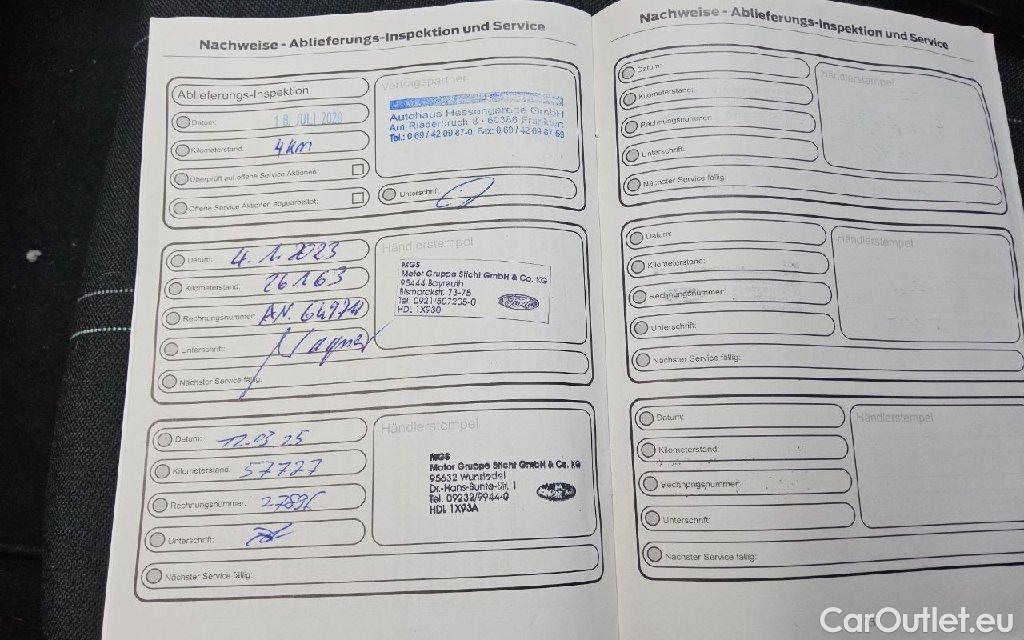 Nachweise - Ablieferungs-Inspektion und Service
Ablieferungs-Inspektion
Datum: 18. JULI 2020
Kilometerstand: 4 km
Überprüft auf offene Service Aktionen
Offene Service Aktionen abgearbeitet:
Vertragspartner
Autohaus Hessengarage GmbH
Am Riederbruch 8 - 60386 Frankfurt
Tel.: 0 69 / 42 09 87-0, Fax: 0 69 / 42 09 87 69
Unterschrift:
Datum: 4.1.2023
Kilometerstand: 26163
Rechnungsnummer:
Unterschrift: Wagner
Nächster Service fällig:
Händlerstempel
MGS
Motor Gruppe Sticht GmbH & Co. KG
95444 Bayreuth
Bismarckstr. 73-75
Tel. 0921/507205-0
HDL 1X930
Datum: 12.03 25
Kilometerstand: 57727
Rechnungsnummer:
Unterschrift:
Nächster Service fällig:
Händlerstempel
MGS
Motor Gruppe Sticht GmbH & Co. KG
95632 Wunsiedel
Tel. 09232/9944-0
HDL 1X93A
Nachweise - Ablieferungs-Inspektion und Service
Datum:
Kilometerstand:
Rechnungsnummer:
Unterschrift:
Nächster Service fällig:
Händlerstempel
Datum:
Kilometerstand:
Rechnungsnummer:
Unterschrift:
Nächster Service fällig:
Händlerstempel
Datum:
Kilometerstand:
Rechnungsnummer:
Unterschrift:
Nächster Service fällig:
Händlerstempel
CarOutlet.eu